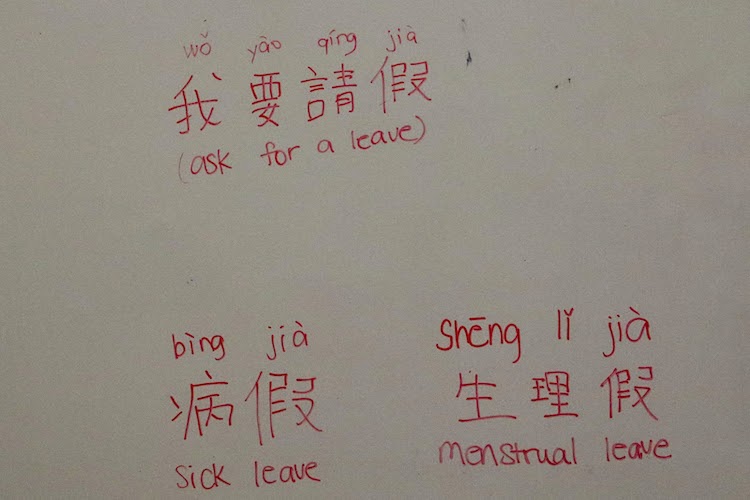 wǒ yào qíng jià
我要請假
(ask for a leave)
bìng jià
病假
sick leave
Shēng lǐ jià
生理假
menstrual leave